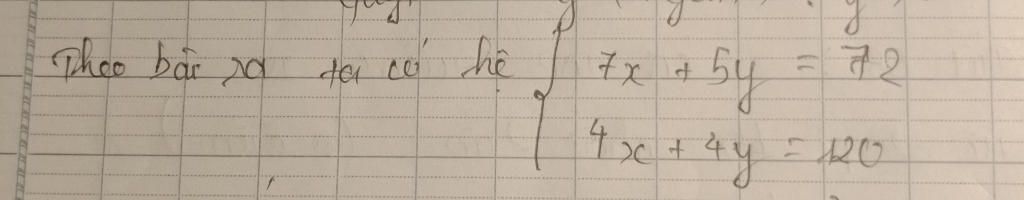 Theo bài ra ta có hệ { 7x + 5y = 72
4x + 4y = 120